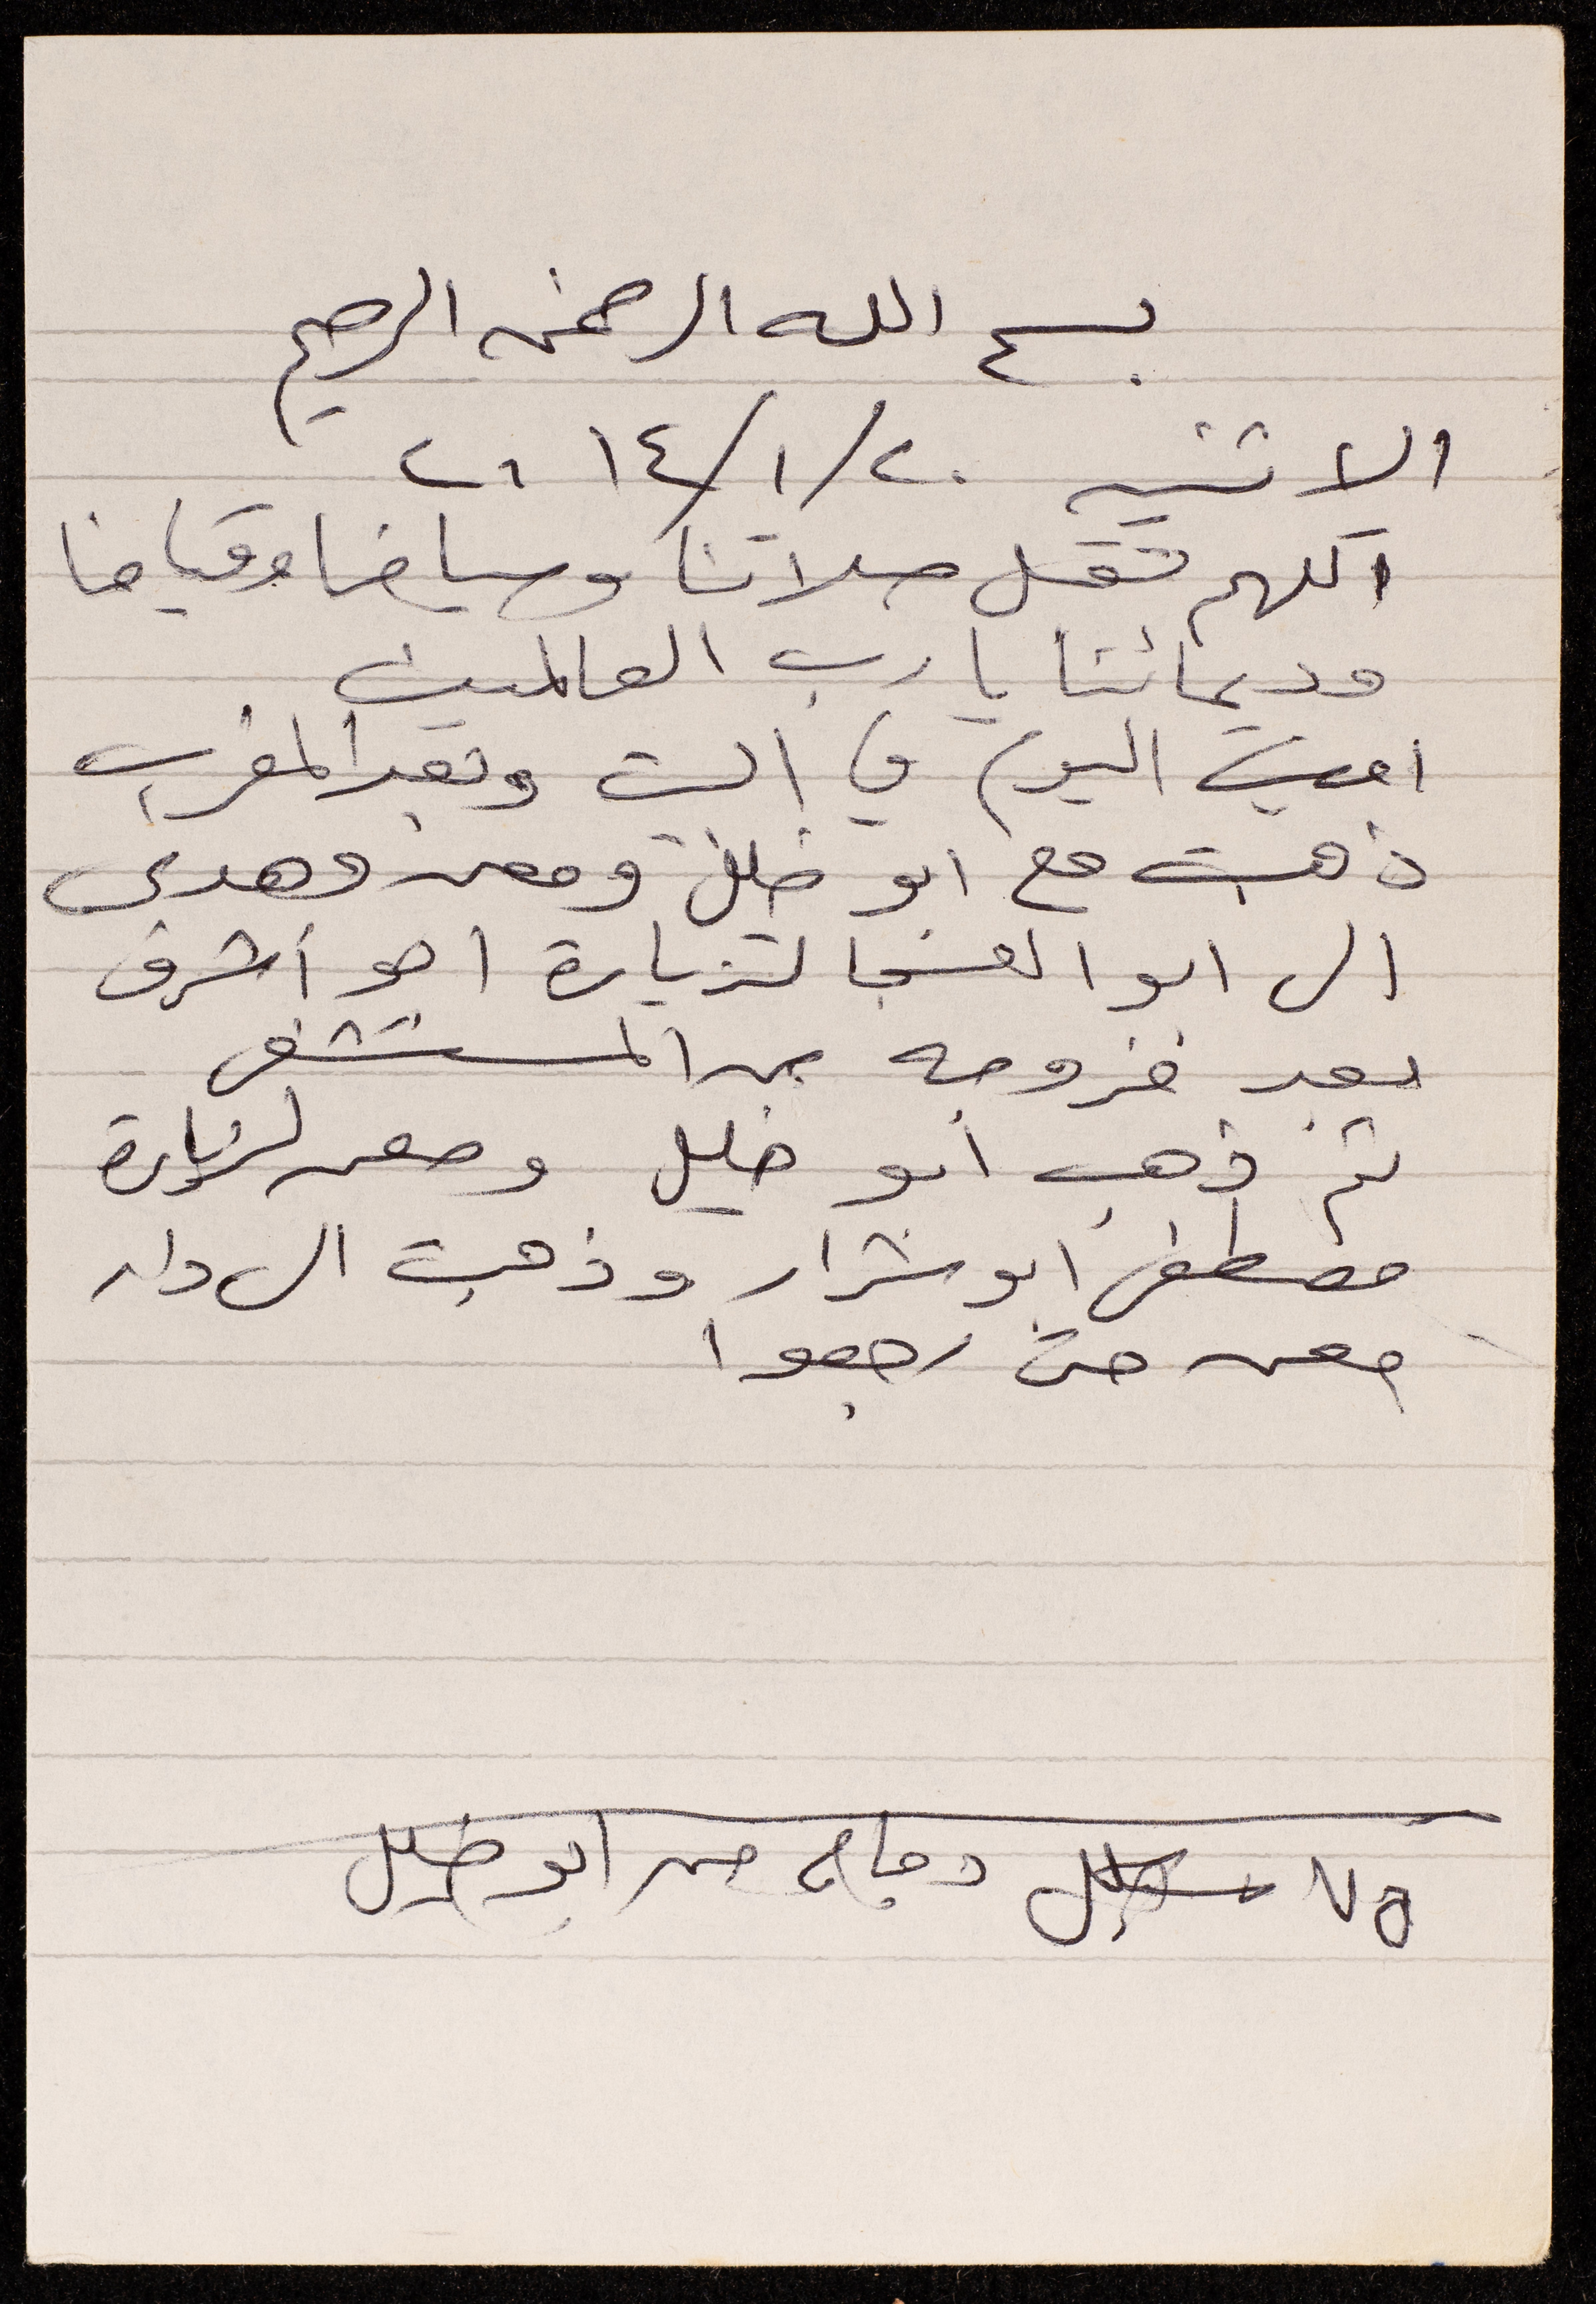 بسم الله الرحمن الرحيم
الاثنين ٢٠/١/٢٠١٤
اللهم تقبل صلاتنا وصيامنا وقيامنا
ودعائنا يا رب العالمين
امضيت اليوم في البيت وبعد المغرب
ذهبت مع ابو خليل ومعن وهدى
الى ابو العسجا لزيارة ابو أشرف
بعد خروجه من المستشفى
ثم ذهب ابو خليل ومعن لزيارة
مصطفى ابو شرار وذهبت الى دار
معن حتى رجعوا
٧٥ شيكل دجاج من ابو خليل